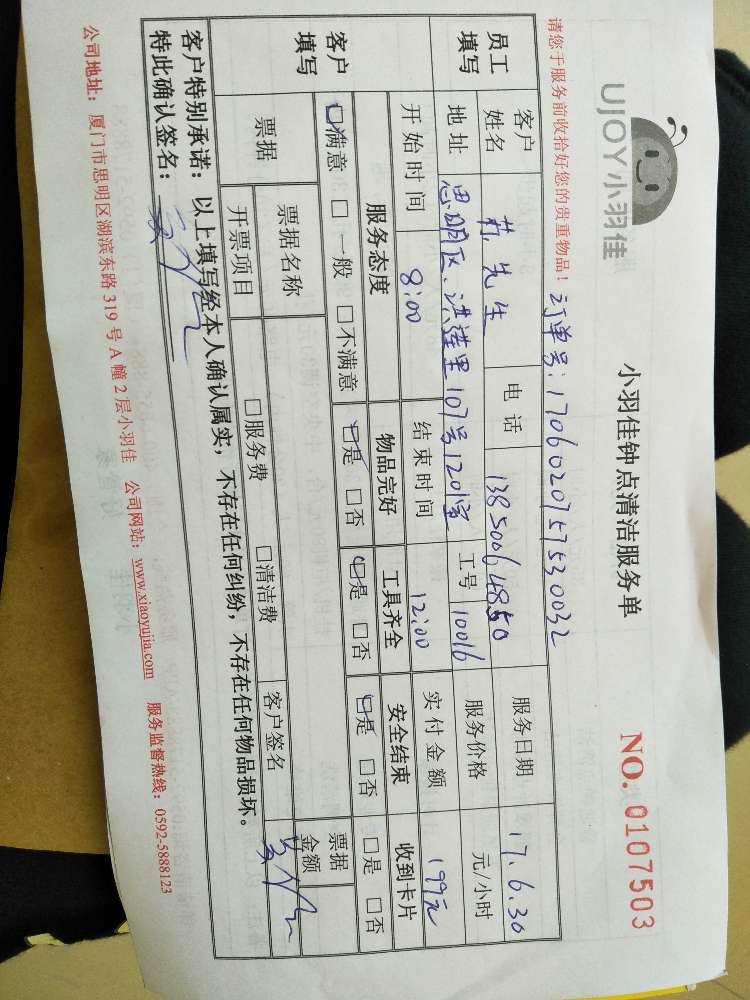 UJOY小羽佳
小羽佳钟点清洁服务单
NO. 0107503
请您于服务前收拾好您的贵重物品!
订单号:1706020757530032
员工填写
客户姓名 先生 电话 13850064850 服务日期 17.6.30
地址 思明区、洪莲里107号1201室 工号 10016 服务价格 元/小时
开始时间 8:00 结束时间 12:00 实付金额 199元
客户填写
服务态度 物品完好 工具齐全 安全结束 收到卡片
☑满意 □一般 □不满意 ☑是 □否 ☑是 □否 ☑是 □否 □是 □否
票据 票据名称 票据金额
开票项目 □服务费 □清洁费 客户签名
客户特别承诺:以上填写经本人确认属实,不存在任何纠纷,不存在任何物品损坏。
特此确认签名:
公司地址:厦门市思明区湖滨东路319号A幢2层小羽佳 公司网站:www.xiaoyujia.com 服务监督热线:0592-5888123